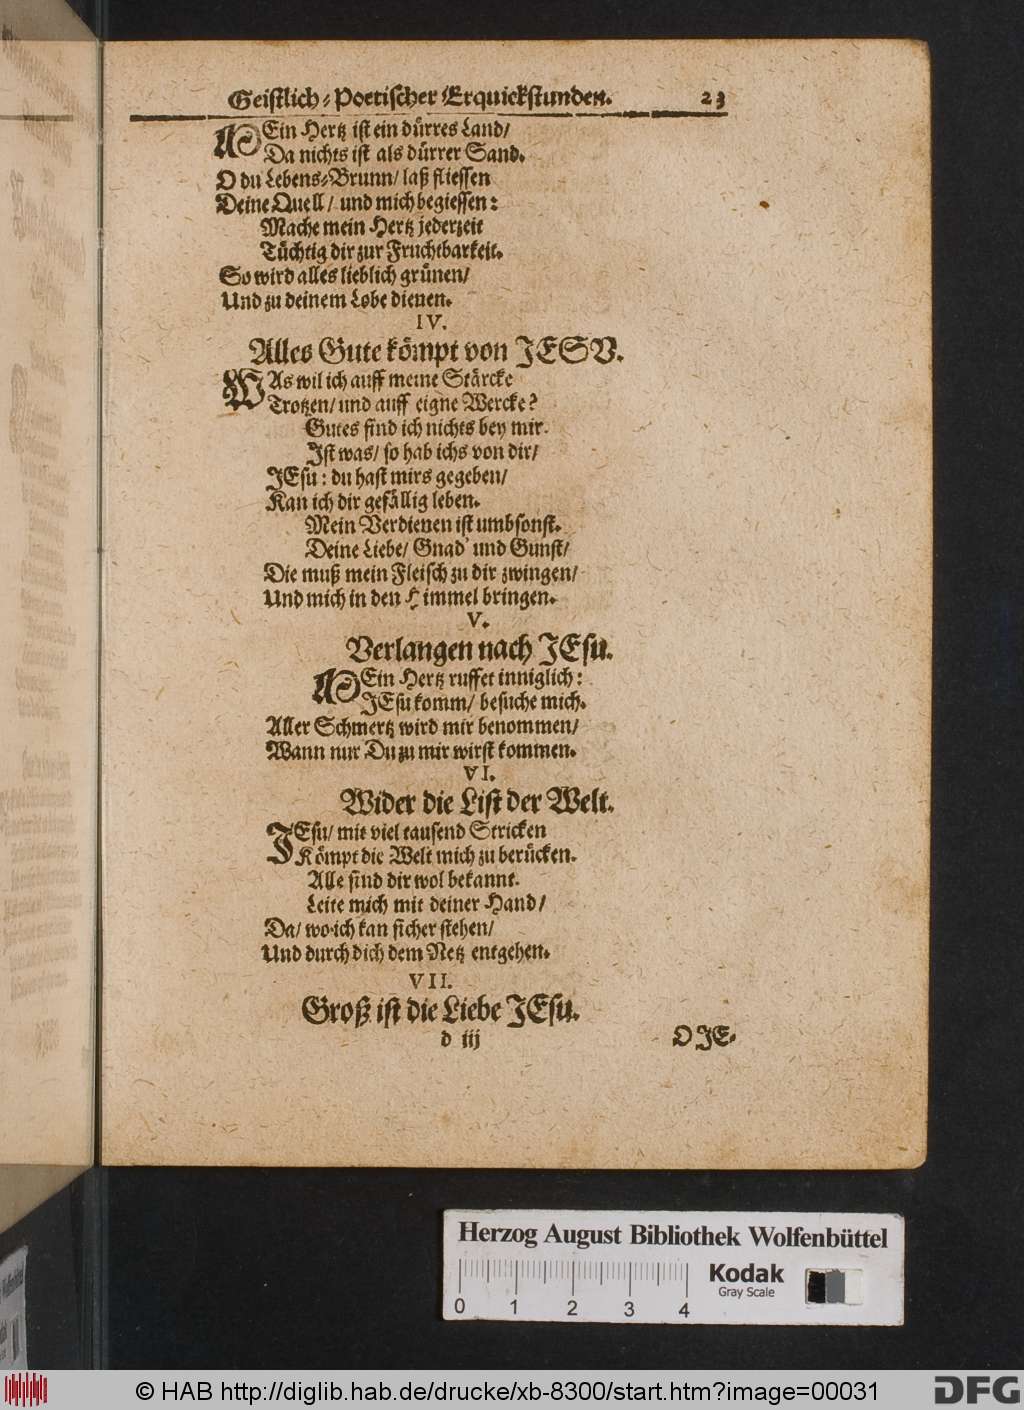 Geistlich-Poetischer Erquickstunden. 23
MEin Hertz ist ein dürres Land/
Da nichts ist als dürrer Sand.
O du Lebens-Brunn/ laß fliessen
Deine Quell/ und mich begiessen:
Mache mein Hertz jederzeit
Tüchtig dir zur Fruchtbarkeit.
So wird alles lieblich grünen/
Und zu deinem Lobe dienen.
IV.
Alles Gute kömpt von JESV.
WAs wil ich auff meine Stärcke
Trotzen/ und auff eigne Wercke?
Gutes find ich nichts bey mir.
Ist was/ so hab ichs von dir/
JEsu: du hast mirs gegeben/
Kan ich dir gefällig leben.
Mein Verdienen ist umbsonst.
Deine Liebe/ Gnad' und Gunst/
Die muß mein Fleisch zu dir zwingen/
Und mich in den Himmel bringen.
V.
Verlangen nach JEsu.
MEin Hertz ruffet inniglich:
JEsu komm/ besuche mich.
Aller Schmertz wird mir benommen/
Wann nur Du zu mir wirst kommen.
VI.
Wider die List der Welt.
JEsu/ mit viel tausend Stricken
Kömpt die Welt mich zu berücken.
Alle sind dir wol bekannt.
Leite mich mit deiner Hand/
Da/ wo ich kan sicher stehen/
Und durch dich dem Netz entgehen.
VII.
Groß ist die Liebe JEsu.
d iij OJE-
Herzog August Bibliothek Wolfenbüttel
0 1 2 3 4
Kodak
Gray Scale
© HAB http://diglib.hab.de/drucke/xb-8300/start.htm?image=00031
DFG